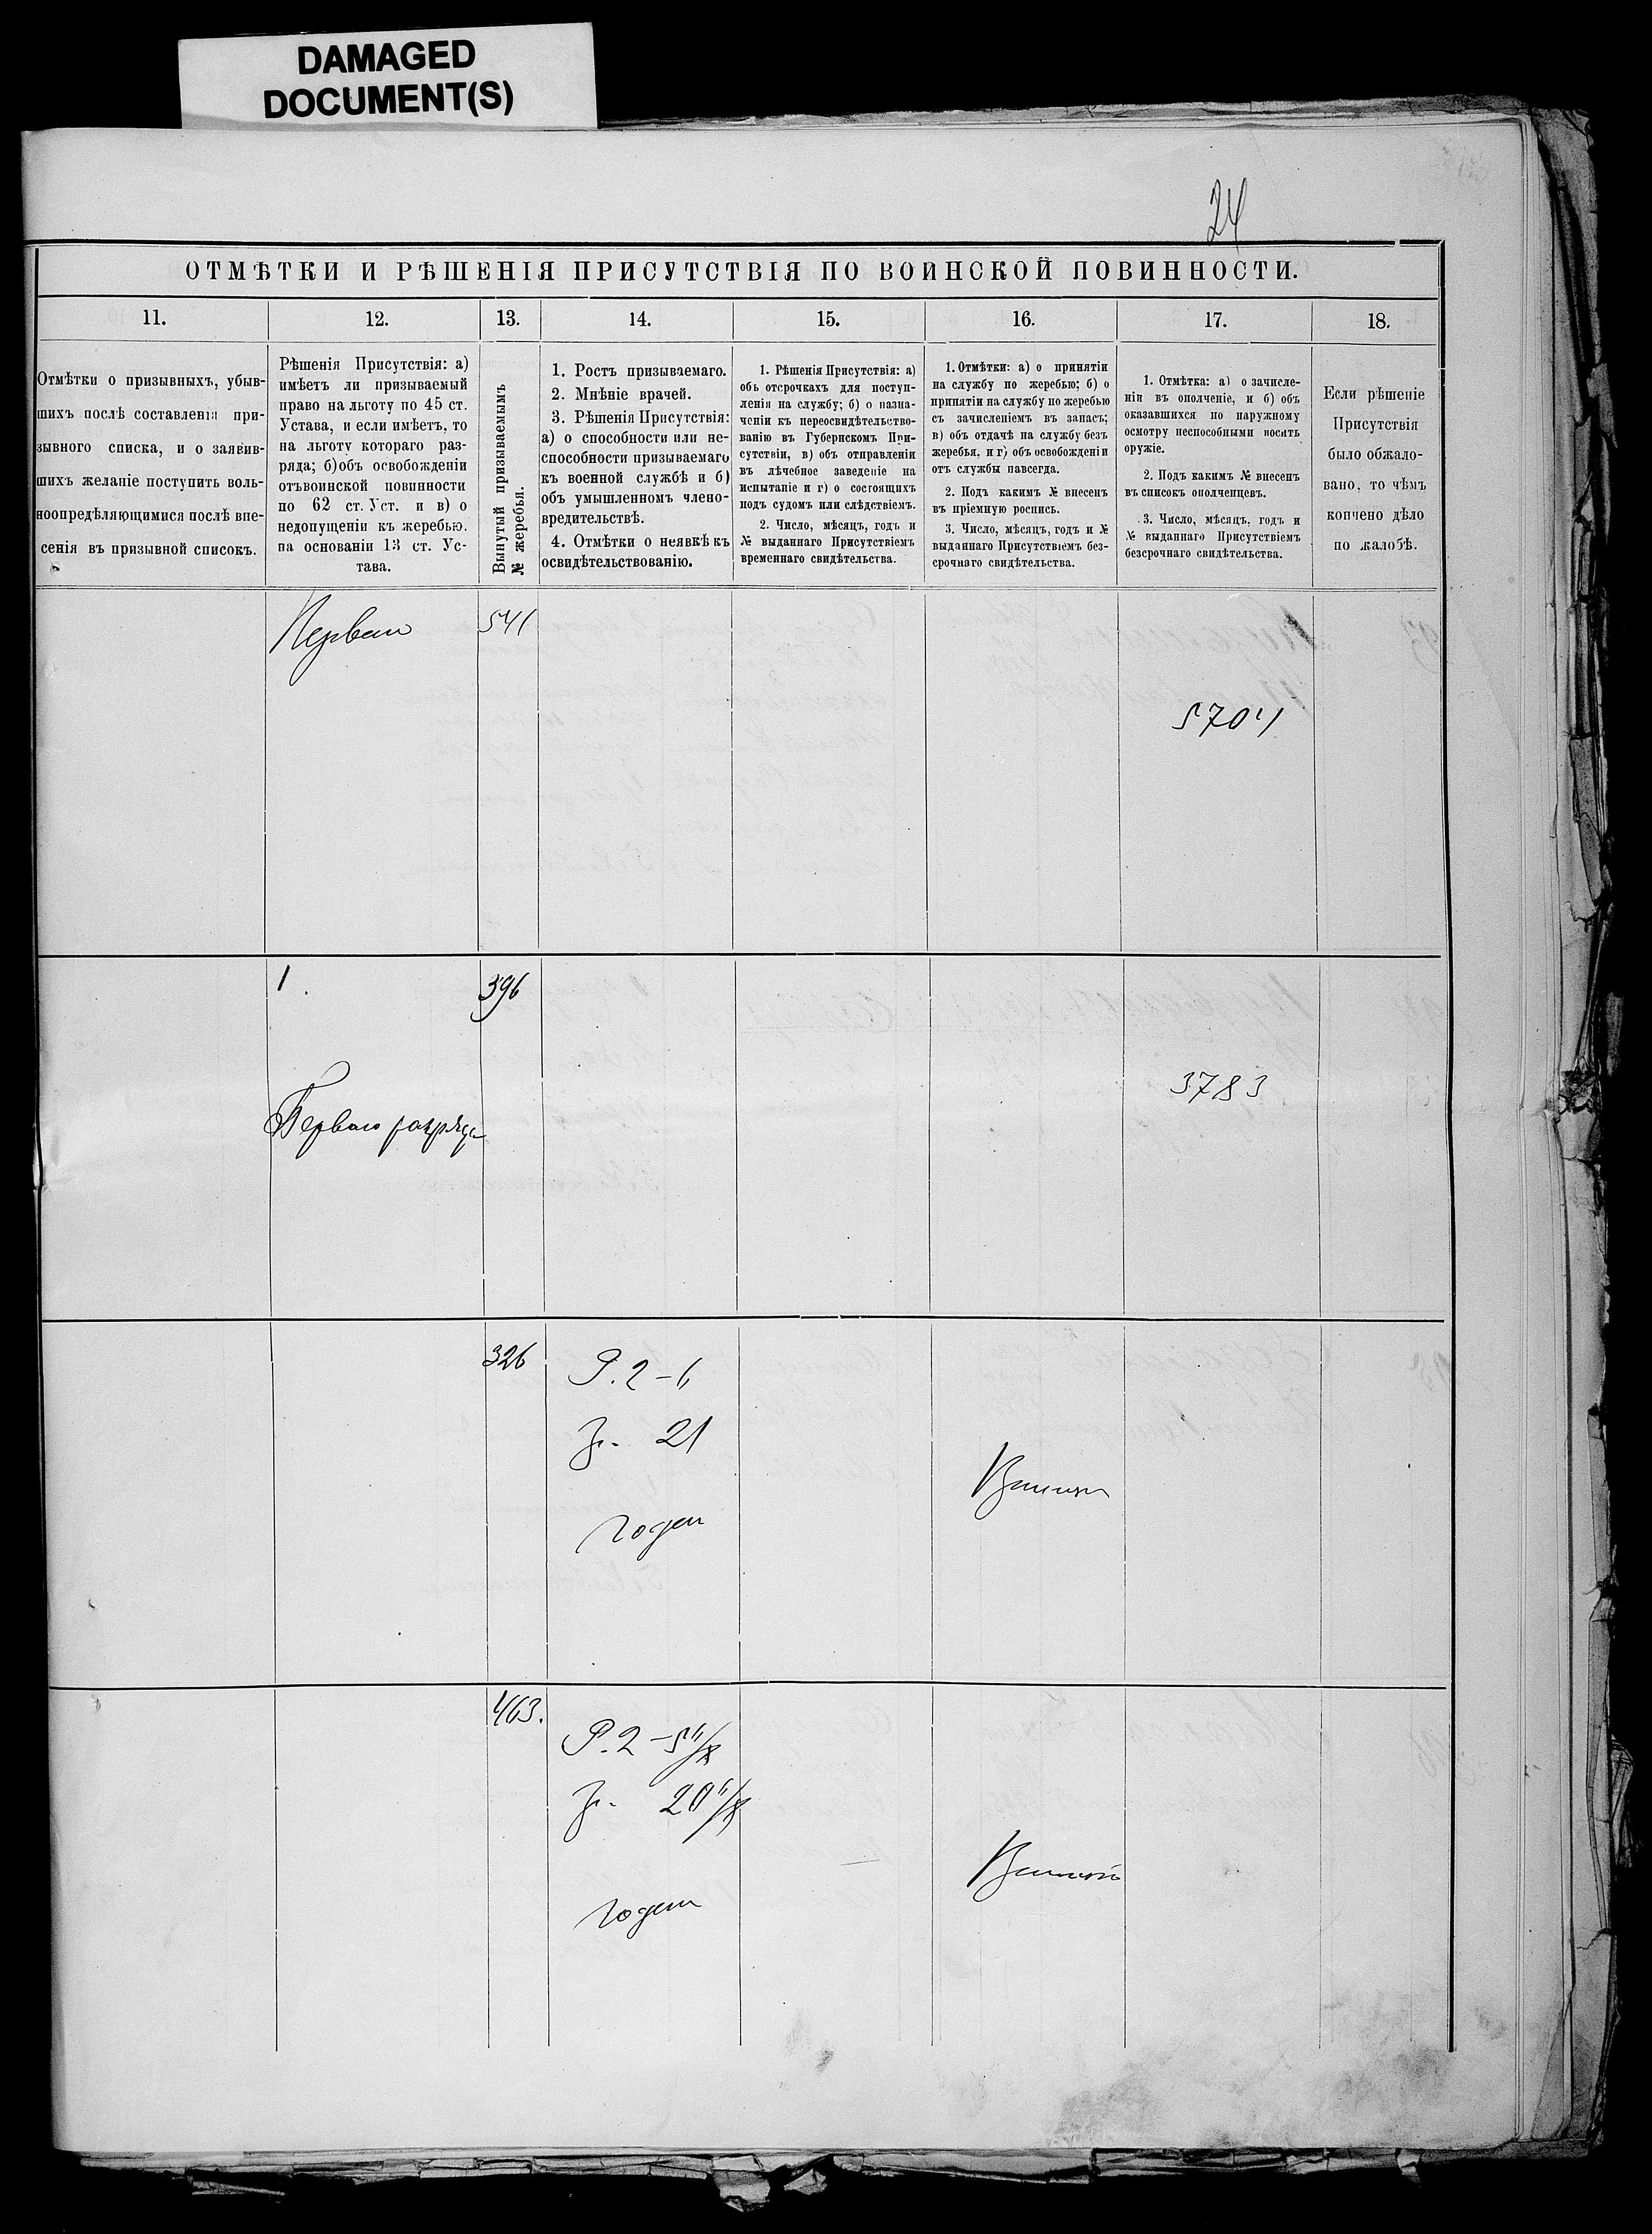 DAMAGED
DOCUMENT(S)
24
ОТМѢТКИ И РѢШЕНІЯ ПРИСУТСТВІЯ ПО ВОИНСКОЙ ПОВИННОСТИ.
11.
12.
13.
14.
15.
16.
17.
18.
Отмѣтки о призывныхъ, убыв-
шихъ послѣ составленія при-
зывного списка, и о заявив-
шихъ желаніе поступить воль-
ноопредѣляющимися послѣ вне-
сенія въ призывной списокъ.
Рѣшенія Присутствія: а)
имѣетъ ли призываемый
право на льготу по 45 ст.
Устава, и если имѣетъ, то
на льготу котораго раз-
ряда; б) объ освобожденіи
отъ воинской повинности
по 62 ст. Уст. и в) о
недопущеніи къ жеребью.
на основаніи 13 ст. Ус-
тава.
Вынутый призываемымъ
№ жеребья.
1. Ростъ призываемаго.
2. Мнѣніе врачей.
3. Рѣшенія Присутствія:
а) о способности или не-
способности призываемаго
къ военной службѣ и б)
объ умышленномъ члено-
вредительствѣ.
4. Отмѣтки о неявкѣ къ
освидѣтельствованію.
1. Рѣшенія Присутствія: а)
объ отсрочкахъ для поступ-
ленія на службу; б) о назна-
ченіи къ переосвидѣтельство-
ванію въ Губернскомъ При-
сутствіи, в) объ отправленіи
въ лѣчебное заведеніе на
испытаніе и г) о состоящихъ
подъ судомъ или слѣдствіемъ.
2. Число, мѣсяцъ, годъ и
№ выданнаго Присутствіемъ
временнаго свидѣтельства.
1. Отмѣтки: а) о принятіи
на службу по жеребью; б) о
принятіи на службу по жеребью
съ зачисленіемъ въ запасъ;
в) объ отдачѣ на службу безъ
жеребья, и г) объ освобожденіи
отъ службы навсегда.
2. Подъ какимъ № внесенъ
въ пріемную роспись.
3. Число, мѣсяцъ, годъ и №
выданнаго Присутствіемъ без-
срочнаго свидѣтельства.
1. Отмѣтка: а) о зачисле-
ніи въ ополченіе, и б) объ
оказавшихся по наружному
осмотру неспособными носить
оружіе.
2. Подъ какимъ № внесенъ
въ списокъ ополченцевъ.
3. Число, мѣсяцъ, годъ и
№ выданнаго Присутствіемъ
безсрочнаго свидѣтельства.
Если рѣшеніе
Присутствія
было обжало-
вано, то чѣмъ
кончено дѣло
по жалобѣ.
541
5704
1.
396
Перваго разряда
3783
326
Р. 2-6
21
годен
463.
Р. 2
годен